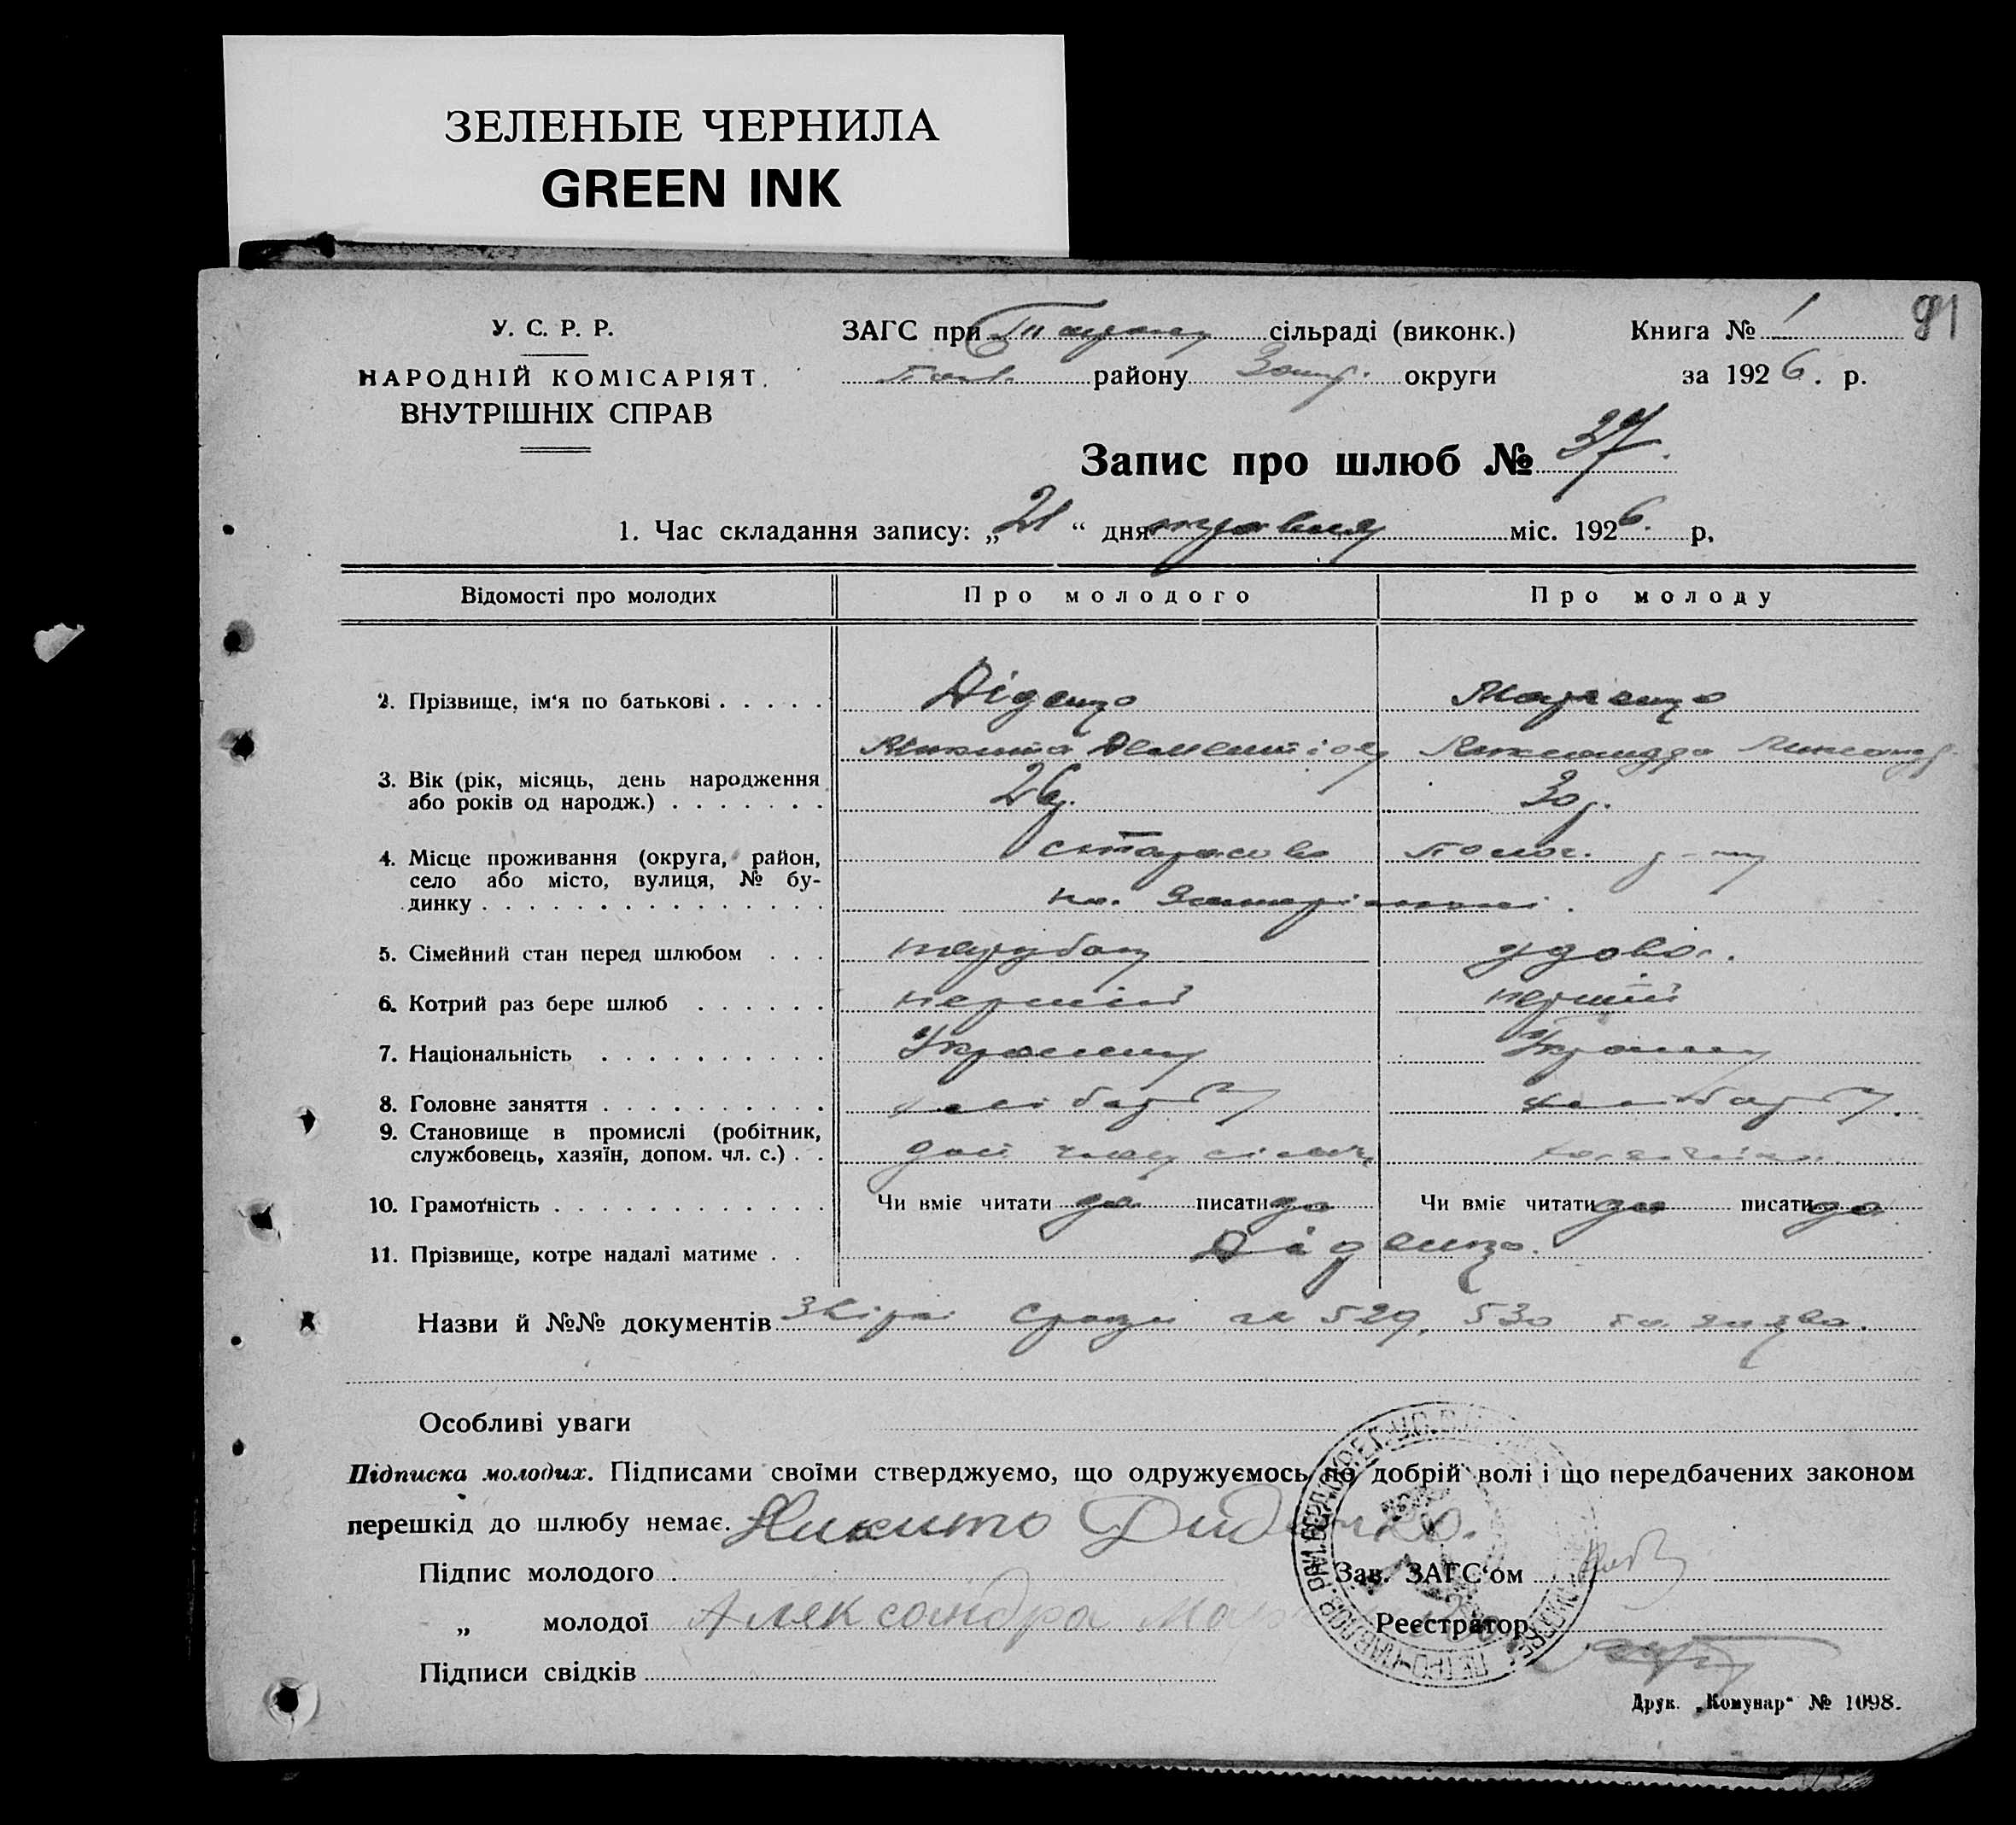 ЗЕЛЕНЫЕ ЧЕРНИЛА
GREEN INK
У. С. Р. Р.
НАРОДНІЙ КОМІСАРІЯТ
ВНУТРІШНІХ СПРАВ
ЗАГС при сільраді (виконк.)
району округи
Книга № 1
91
за 1926. р.
Запис про шлюб № 37.
1. Час складання запису: „21“ дня травня міс. 1926. р.
Відомості про молодих
Про молодого
Про молоду
2. Прізвище, ім‘я по батькові . . . . .
Діденко
Марченко
Микита Дементіов
Александра
3. Вік (рік, місяць, день народження
або років од народж.) . . . . . . .
26р.
30р.
4. Місце проживання (округа, район,
село або місто, вулиця, № бу-
динку . . . . . . . . . . . . . . .
5. Сімейний стан перед шлюбом . . .
парубок
удова.
6. Котрий раз бере шлюб . . . . . .
перший
перший
7. Національність . . . . . . . . . .
Українец
8. Головне заняття . . . . . . . . . .
хлібороб
хлібороб.
9. Становище в промислі (робітник,
службовець, хазяїн, допом. чл. с.) . .
доп. член сімьї
10. Грамотність . . . . . . . . . . . .
Чи вміє читати да писати да
Чи вміє читати да писати да
11. Прізвище, котре надалі матиме . .
Діденко.
Назви й №№ документів 529, 530
Особливі уваги
Підписка молодих. Підписами своїми стверджуємо, що одружуємось по добрій волі і що передбачених законом
перешкід до шлюбу немає. Никито Диденко.
Підпис молодого .
Зав. ЗАГС‘ом
„ молодої Александра
Реєстратор
Підписи свідків
Друк. „Комунар“ № 1098.